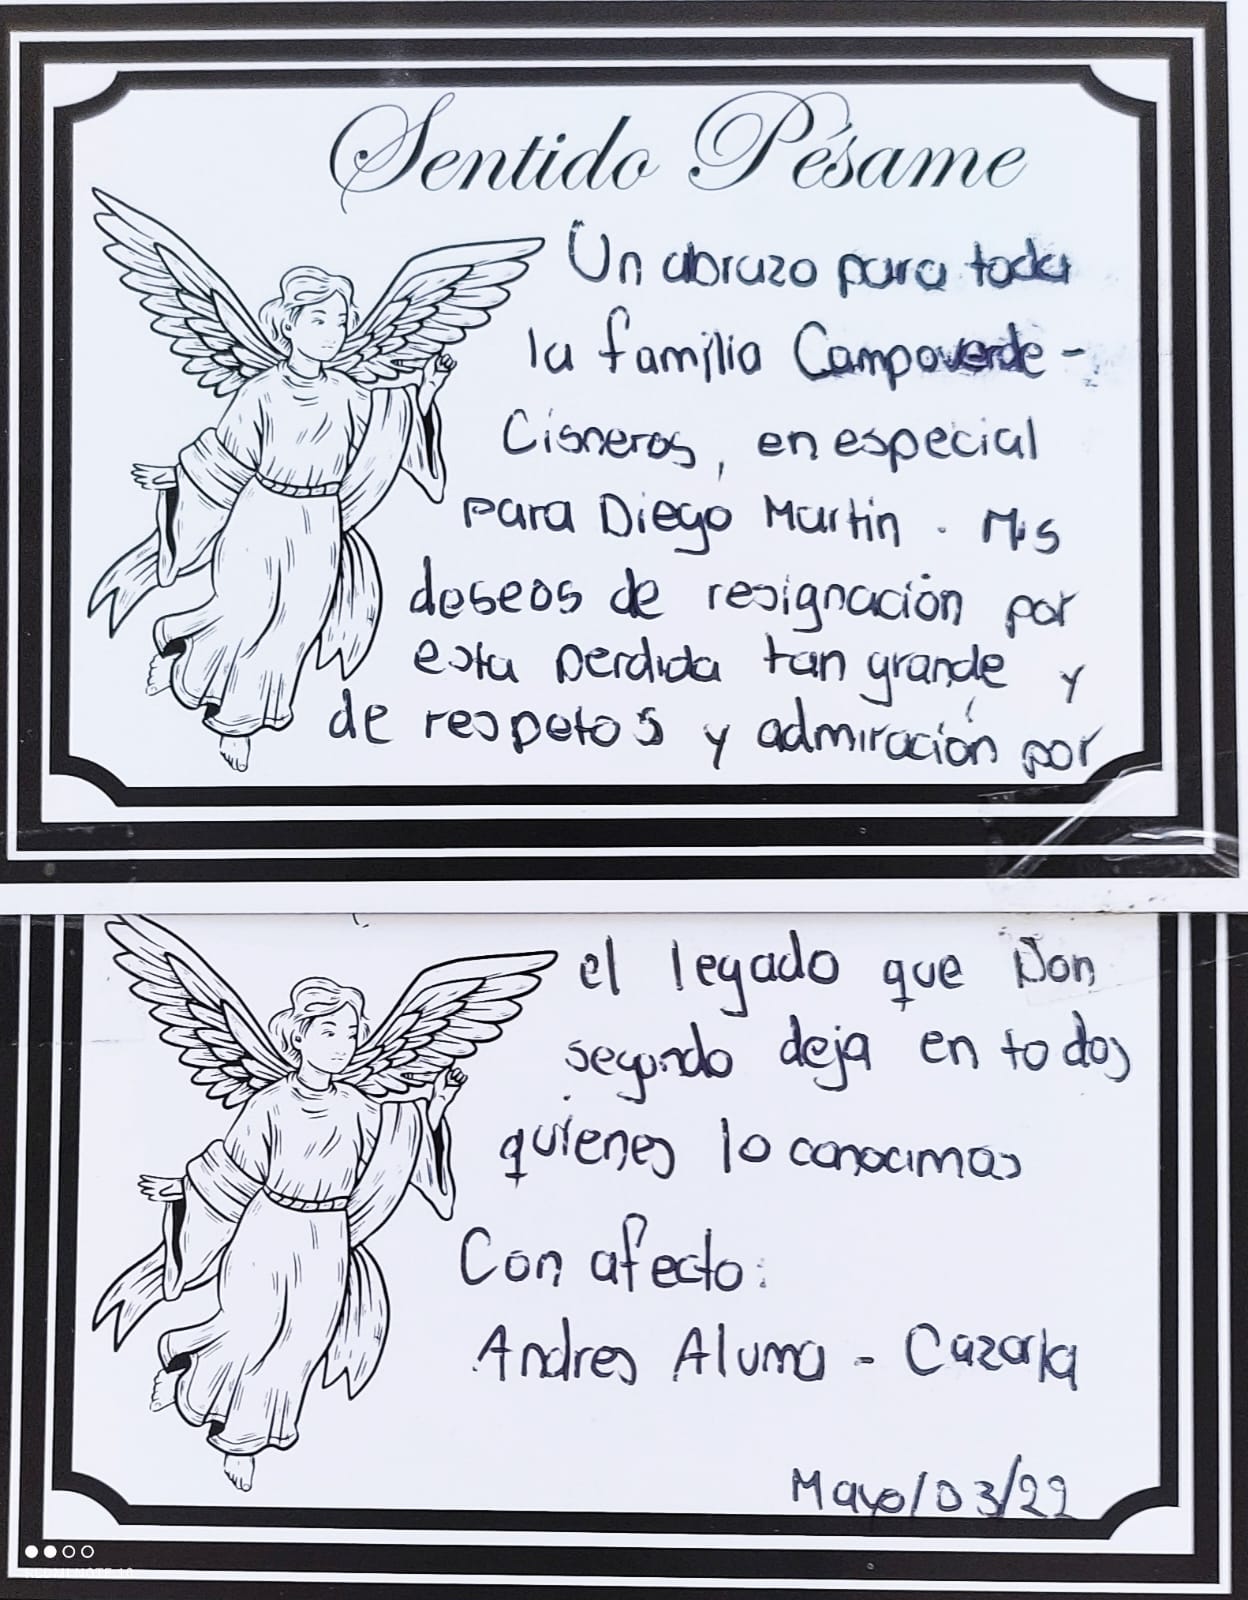 Sentido Pésame
Un abrazo para toda
la familia Campoverde -
Cisneros, en especial
para Diego Martin. Mis
deseos de resignación por
esta perdida tan grande y
de respetos y admiración por
el legado que Don
segundo deja en todos
quienes lo conocimos
Con afecto:
Andres Aluma - Cazarla
Mayo/03/22
REDMI NOTE